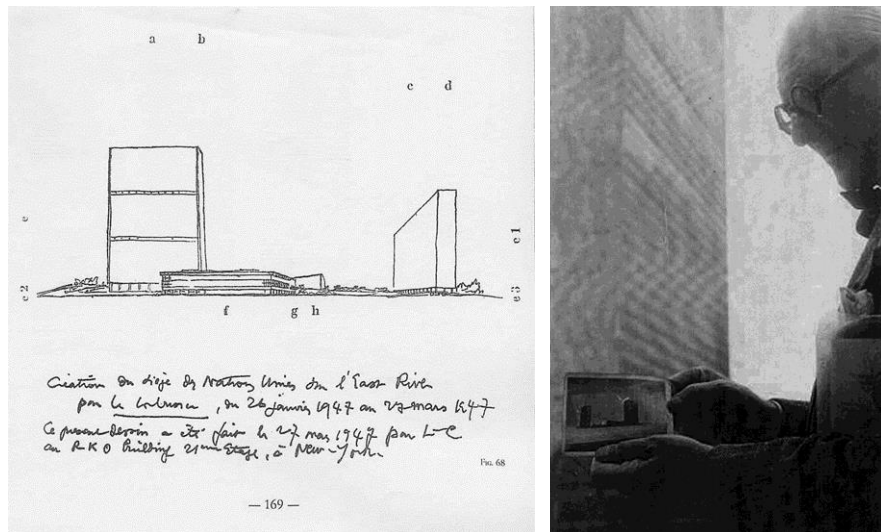 a b
c d
e
e 1
e 2
e 3
f
g h
Création du siège des Nations Unies sur l'East River
par Le Corbusier, du 26 janvier 1947 au 27 mars 1947
Ce présent dessin a été fait le 27 mars 1947 par L-C
au R K O Building 21ème Etage, à New-York.
Fig. 68
— 169 —